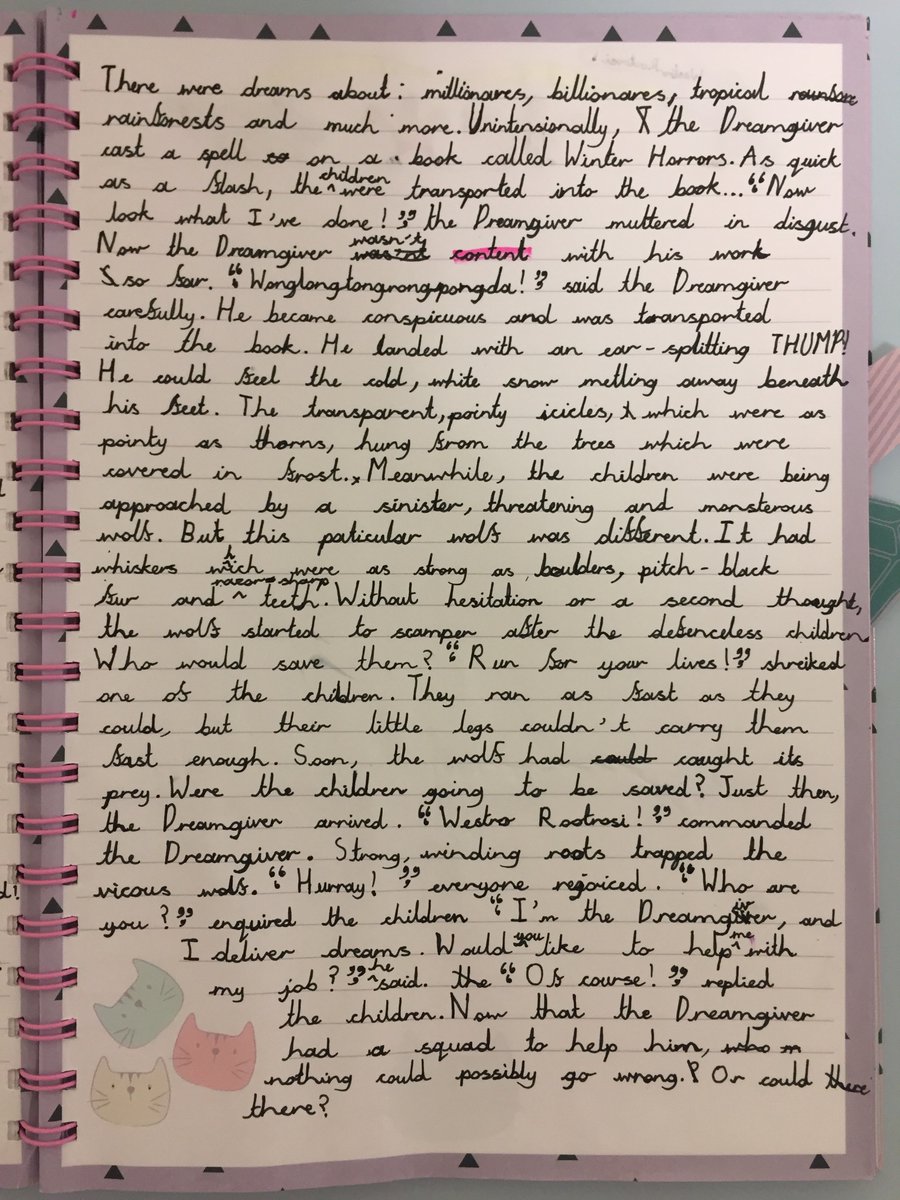 There were dreams about: millionares, billionares, tropical
rainforests and much more. Unintensionally, the Dreamgiver
cast a spell on a book called Winter Horrors. As quick
as a flash, the children were transported into the book... "Now
look what I've done!" the Dreamgiver muttered in disgust.
Now the Dreamgiver wasn't content with his work
so far. "Wonglongtongrongpongda!" said the Dreamgiver
carefully. He became conspicuous and was transported
into the book. He landed with an ear-splitting THUMP!
He could feel the cold, white snow metling away beneath
his feet. The transparent, pointy icicles, which were as
pointy as thorns, hung from the trees which were
covered in frost. Meanwhile, the children were being
approached by a sinister, threatening and monsterous
wolf. But this paticular wolf was different. It had
whiskers which were as strong as boulders, pitch-black
fur and razor-sharp teeth. Without hesitation or a second thought,
the wolf started to scamper after the defenceless children
Who would save them? "Run for your lives!" shreiked
one of the children. They ran as fast as they
could, but their little legs couldn't carry them
fast enough. Soon, the wolf had caught its
prey. Were the children going to be saved? Just then,
the Dreamgiver arrived. "Westro Rootrosi!" commanded
the Dreamgiver. Strong, winding roots trapped the
vicous wolf. "Hurray!" everyone rejoiced. "Who are
you?" enquired the children "I'm the Dreamgiver, and
I deliver dreams. Would you like to help me with
my job?" he said. the "Of course!" replied
the children. Now that the Dreamgiver
had a squad to help him,
nothing could possibly go wrong.? Or could there
there?